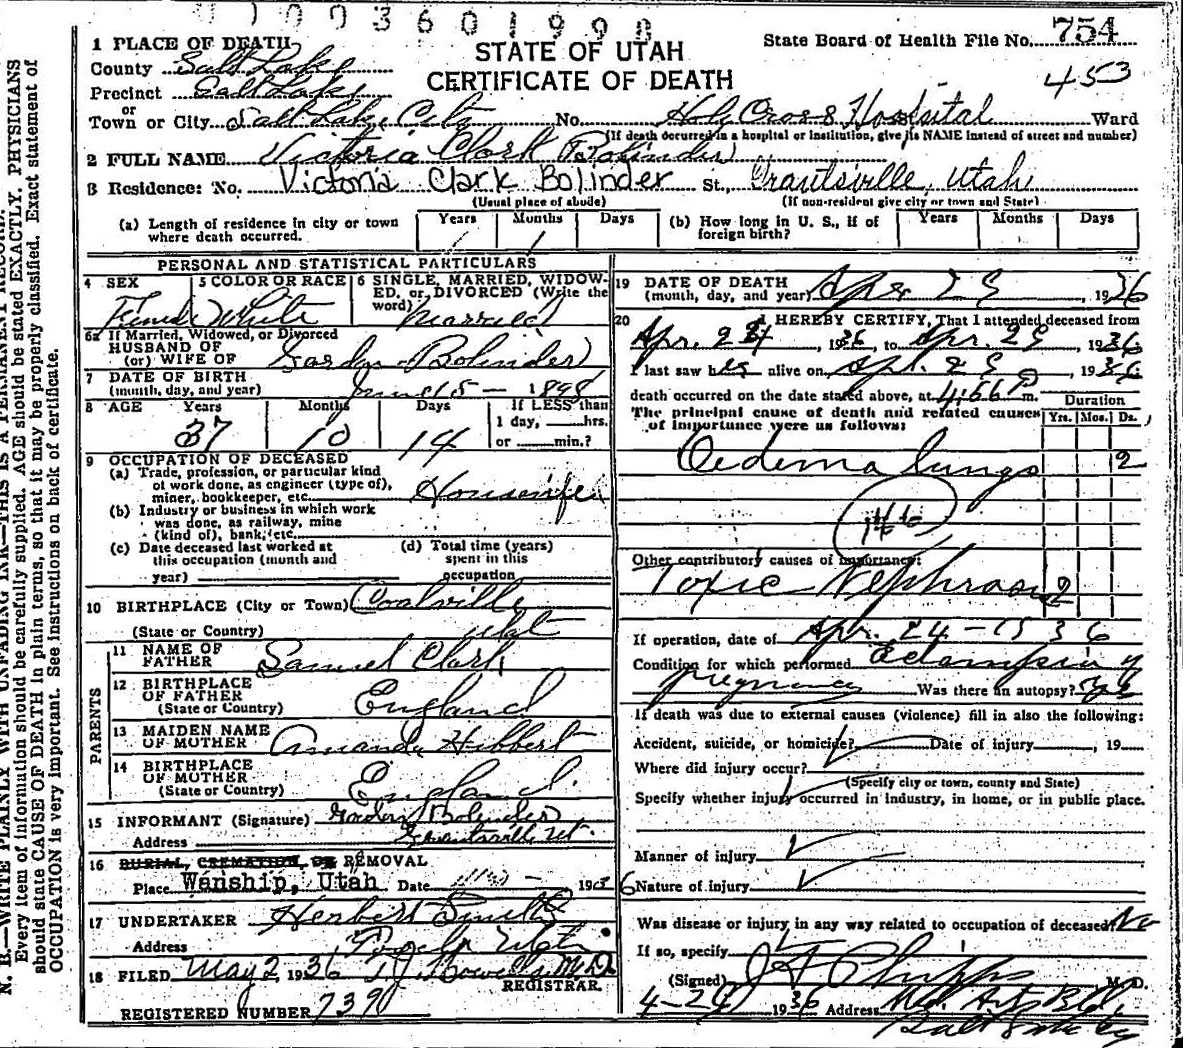 1003601998
State Board of Health File No. 754
STATE OF UTAH
CERTIFICATE OF DEATH
453
1 PLACE OF DEATH
County Salt Lake
Precinct Salt Lake
or
Town or City Salt Lake City No. Holy Cross Hospital Ward
(If death occurred in a hospital or institution, give its NAME instead of street and number)
2 FULL NAME Victoria Clark Bolinder
3 Residence: No. Victoria Clark Bolinder St., Grantsville, Utah
(Usual place of abode) (If non-resident give city or town and State)
(a) Length of residence in city or town where death occurred. Years Months Days
(b) How long in U. S., if of foreign birth? Years Months Days
PERSONAL AND STATISTICAL PARTICULARS
4 SEX Female
5 COLOR OR RACE White
6 SINGLE, MARRIED, WIDOWED, or DIVORCED (Write the word) Married
6a If Married, Widowed, or Divorced
HUSBAND OF
(or) WIFE OF Gordon Bolinder
7 DATE OF BIRTH
(month, day, and year) June 15 - 1898
8 AGE Years Months Days If LESS than
37 10 14 1 day, hrs.
or min.?
9 OCCUPATION OF DECEASED
(a) Trade, profession, or particular kind
of work done, as engineer (type of),
miner, bookkeeper, etc. Housewife
(b) Industry or business in which work
was done, as railway, mine
(kind of), bank, etc.
(c) Date deceased last worked at
this occupation (month and
year)
(d) Total time (years)
spent in this
occupation
10 BIRTHPLACE (City or Town) Coalville
(State or Country) Utah
PARENTS
11 NAME OF
FATHER Samuel Clark
12 BIRTHPLACE
OF FATHER
(State or Country) England
13 MAIDEN NAME
OF MOTHER Amanda Hibbert
14 BIRTHPLACE
OF MOTHER
(State or Country) England.
15 INFORMANT (Signature) Gordon Bolinder
Address Grantsville Ut.
16 BURIAL, CREMATION, OR REMOVAL
Place Wanship, Utah Date 1936
17 UNDERTAKER Herbert Smith
Address
18 FILED May 2 1936 M.D.
REGISTRAR.
REGISTERED NUMBER 739
19 DATE OF DEATH
(month, day, and year) Apr 29, 1936
20 I HEREBY CERTIFY, That I attended deceased from
Apr. 1936, to Apr. 29 1936
I last saw h alive on Apr. 29 1936
death occurred on the date stated above, at P m.
The principal cause of death and related causes
of importance were as follows:
Duration
Yrs. Mos. Ds.
Oedema lungs 2
Other contributory causes of importance:
Toxic Nephrosis 2
If operation, date of Apr. 24 - 1936
Condition for which performed eclampsia of
pregnancy Was there an autopsy? Yes
If death was due to external causes (violence) fill in also the following:
Accident, suicide, or homicide? Date of injury , 19
Where did injury occur?
(Specify city or town, county and State)
Specify whether injury occurred in industry, in home, or in public place.
Manner of injury
Nature of injury
Was disease or injury in any way related to occupation of deceased? No
If so, specify
(Signed) Phipps M. D.
4-29 1936 Address Med. Arts Bld,
Salt Lake City
N. B.—WRITE PLAINLY WITH UNFADING INK—THIS IS A PERMANENT RECORD.
Every item of information should be carefully supplied. AGE should be stated EXACTLY. PHYSICIANS
should state CAUSE OF DEATH in plain terms, so that it may be properly classified. Exact statement of
OCCUPATION is very important. See instructions on back of certificate.